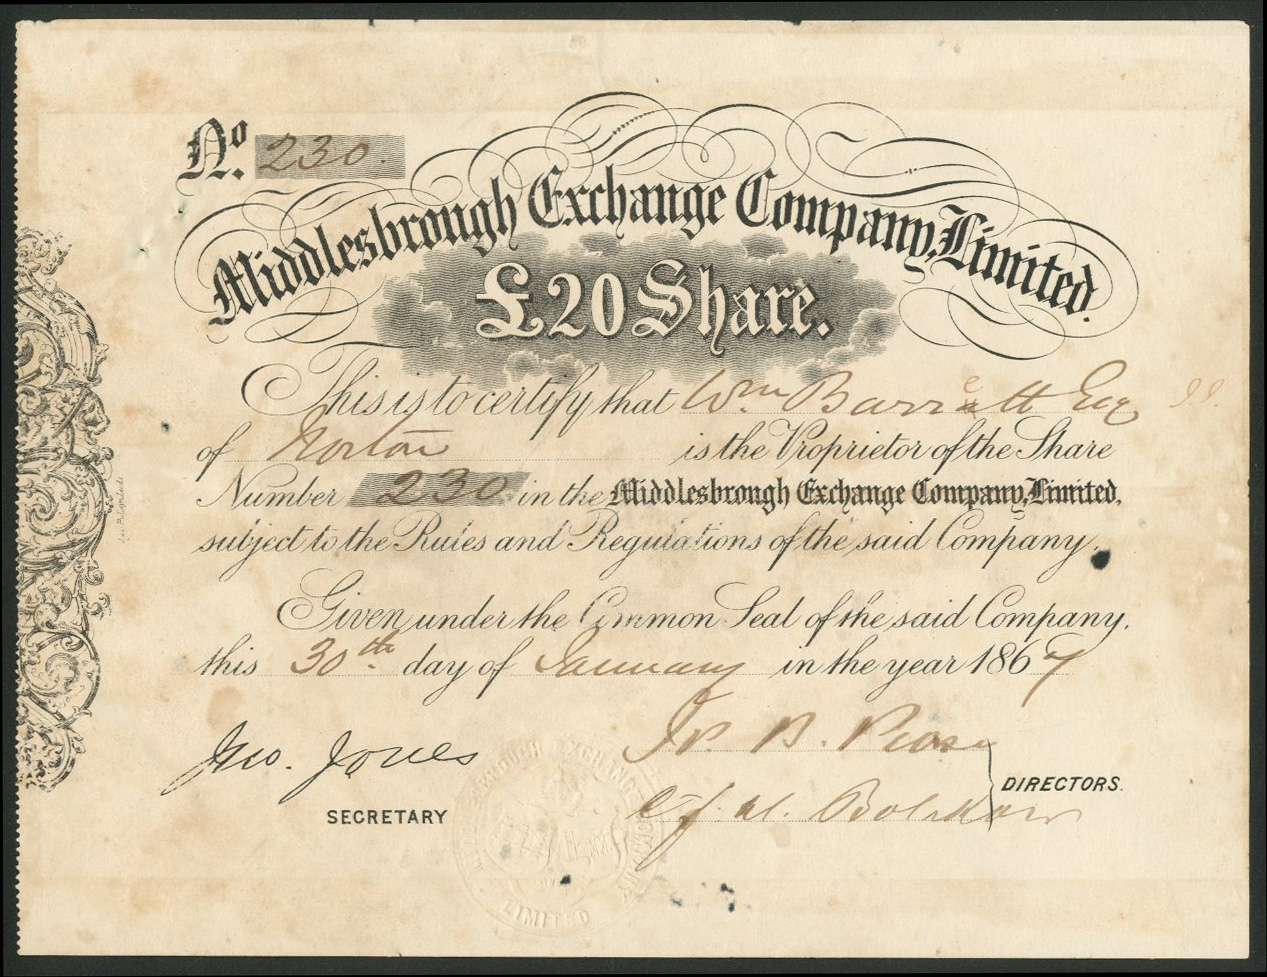 No. 230.
Middlesbrough Exchange Company, Limited.
£20 Share.
This is to certify that Wm Barrett Esq
of Norton is the Proprietor of the Share
Number 230 in the Middlesbrough Exchange Company, Limited,
subject to the Rules and Regulations of the said Company.
Given under the Common Seal of the said Company,
this 30th day of January in the year 1867
Jno. Jones
SECRETARY
Jos. B. Pease
C. F. H. Bolckow
DIRECTORS.
MIDDLESBROUGH EXCHANGE COMPANY
LIMITED